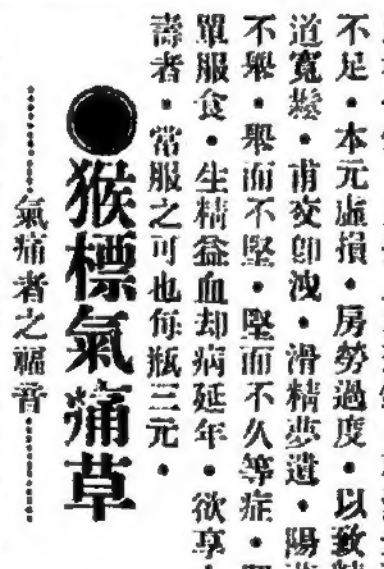 不足。本元虛損。房勞過度。以致精
道寬鬆。甫交卽洩。滑精夢遺。陽
不舉。舉而不堅。堅而不久等症。
單服食。生精益血却病延年。欲享
壽者。常服之可也每瓶三元。
●猴標氣痛草
氣痛者之福音